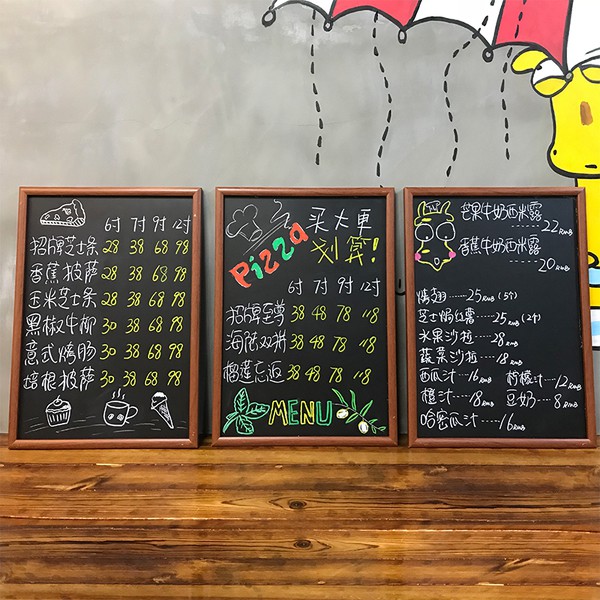 6寸 7寸 9寸 12寸
招牌芝士条 28 38 68 98
香蕉披萨 28 38 68 98
玉米芝士条 28 38 68 98
黑椒牛柳 30 38 68 98
意式烤肠 30 38 68 98
培根披萨 30 38 68 98
Pizza
买大更
划算!
6寸 7寸 9寸 12寸
招牌至尊 38 48 78 118
海陆双拼 38 48 78 118
榴莲忘返 38 48 78 118
MENU
芒果牛奶西米露
22RMB
香蕉牛奶西米露
20RMB
烤翅······25RMB(5个)
芝士焗红薯····25RMB(2个)
水果沙拉····28RMB
蔬菜沙拉····18RMB
西瓜汁···16RMB 柠檬汁···12RMB
橙汁···18RMB 豆奶···8RMB
哈密瓜汁····16RMB